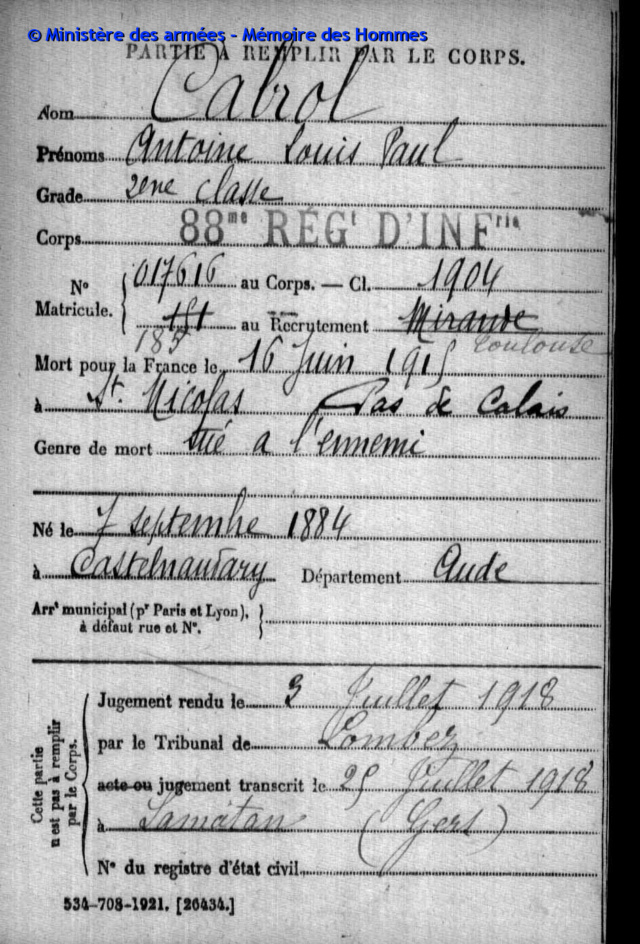 © Ministère des armées - Mémoire des Hommes
PARTIE À REMPLIR PAR LE CORPS.
Nom Cabrol
Prénoms Antoine Louis Paul
Grade 2eme classe
Corps 88me RÉGt D'INFrie
No Matricule. 017616 au Corps. — Cl. 1904
181 au Recrutement Mirande
185 Toulouse
Mort pour la France le 16 Juin 1915
à St. Nicolas Pas de Calais
Genre de mort tué a l'ennemi
Né le 7 septembre 1884
à Castelnaudary Département Aude
Arrt municipal (pr Paris et Lyon),
à défaut rue et No.
Cette partie n'est pas à remplir par le Corps.
Jugement rendu le 3 Juillet 1918
par le Tribunal de Lombez
acte ou jugement transcrit le 25 Juillet 1918
à Samatan (Gers)
No du registre d'état civil
534-708-1921. [26434.]